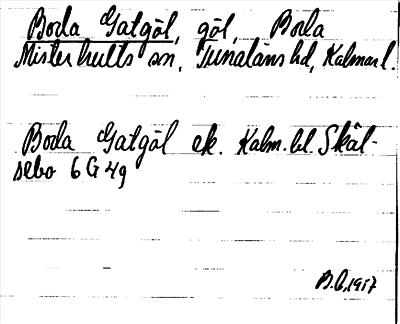 Boda Gatgöl, göl, Boda
Misterhults sn, Tunaläns hd, Kalmar l.
Boda Gatgöl ek. Kalm. bl. Skäl-
sebo 6 G 4g